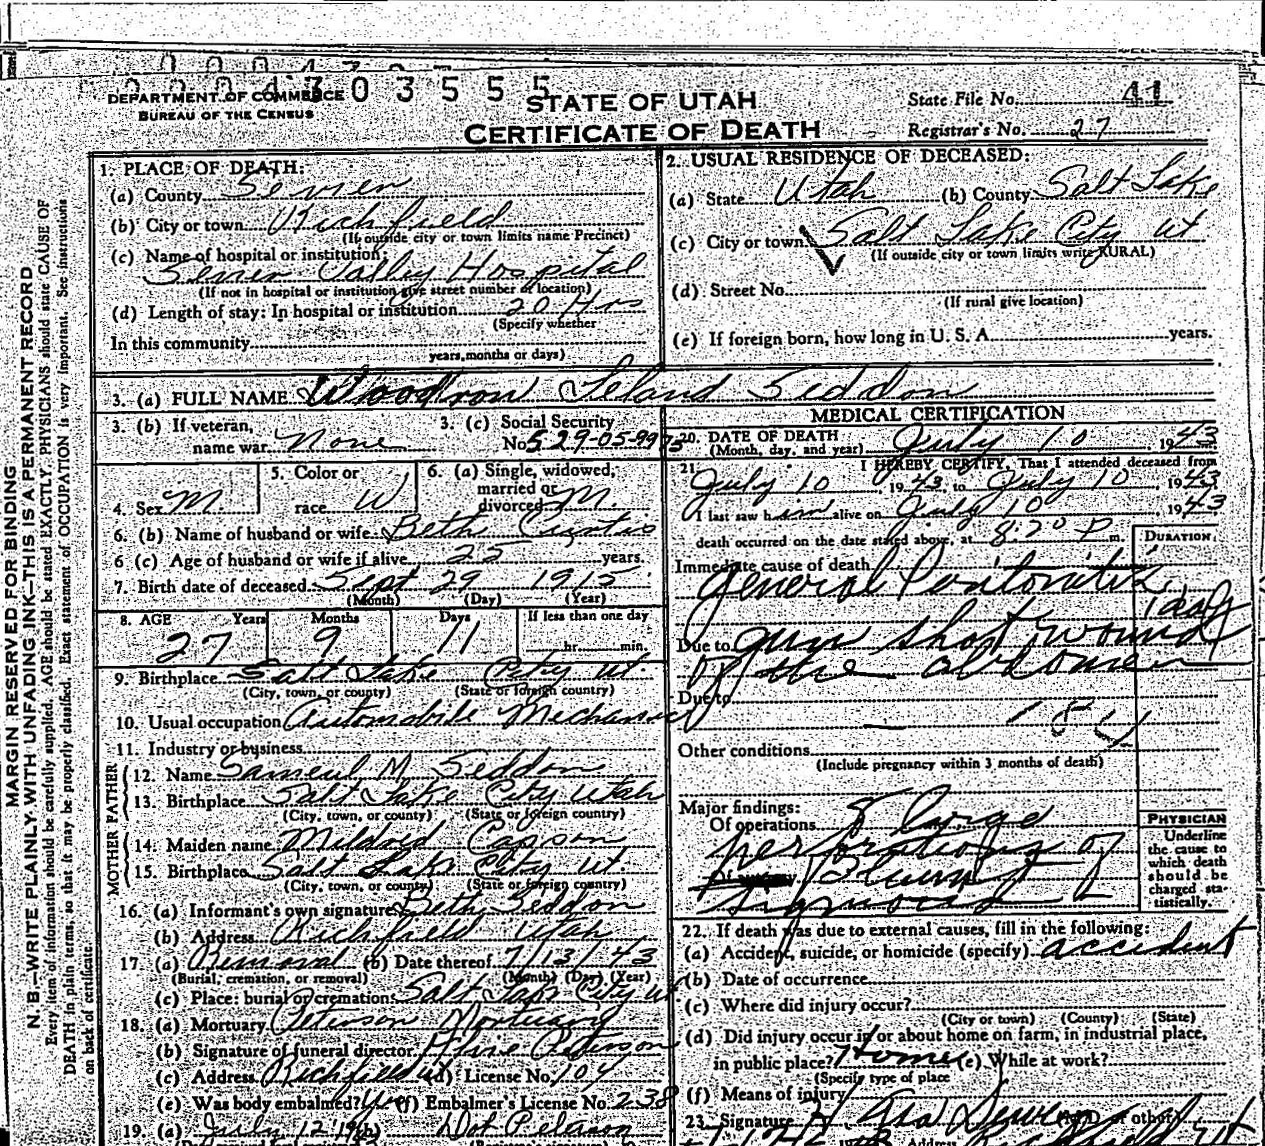 0004303555
DEPARTMENT OF COMMERCE
BUREAU OF THE CENSUS
STATE OF UTAH
CERTIFICATE OF DEATH
State File No. 41
Registrar's No. 27
MARGIN RESERVED FOR BINDING
N. B.—WRITE PLAINLY WITH UNFADING INK—THIS IS A PERMANENT RECORD
Every item of information should be carefully supplied. AGE should be stated EXACTLY. PHYSICIANS should state CAUSE OF
DEATH in plain terms, so that it may be properly classified. Exact statement of OCCUPATION is very important. See instructions
on back of certificate.
1. PLACE OF DEATH:
(a) County Sevier
(b) City or town Richfield
(If outside city or town limits name Precinct)
(c) Name of hospital or institution:
Sevier Valley Hospital
(If not in hospital or institution give street number or location)
(d) Length of stay: In hospital or institution 20 Hrs
(Specify whether
In this community
years, months or days)
2. USUAL RESIDENCE OF DECEASED:
(a) State Utah (b) County Salt Lake
(c) City or town Salt Lake City Ut
(If outside city or town limits write RURAL)
(d) Street No.
(If rural give location)
(e) If foreign born, how long in U. S. A. years.
3. (a) FULL NAME Woodrow Leland Seddon
3. (b) If veteran, name war None
3. (c) Social Security No. 529-05-997
4. Sex M.
5. Color or race W
6. (a) Single, widowed, married or divorced M.
6. (b) Name of husband or wife Beth Curtis
6 (c) Age of husband or wife if alive 25 years.
7. Birth date of deceased Sept 29 1915
(Month) (Day) (Year)
8. AGE Years Months Days If less than one day
27 9 11 hr. min.
9. Birthplace Salt Lake City Ut
(City, town, or county) (State or foreign country)
10. Usual occupation Automobile Mechanic
11. Industry or business
FATHER
12. Name Sameul M. Seddon
13. Birthplace Salt Lake City Utah
(City, town, or county) (State or foreign country)
MOTHER
14. Maiden name Mildred Capson
15. Birthplace Salt Lake City Ut.
(City, town, or county) (State or foreign country)
16. (a) Informant's own signature Beth Seddon
(b) Address Richfield Utah
17. (a) Removal (b) Date thereof 7/13/43
(Burial, cremation, or removal) (Month) (Day) (Year)
(c) Place: burial or cremation Salt Lake City Ut
18. (a) Mortuary Peterson Mortuary
(b) Signature of funeral director Peterson
(c) Address Richfield Ut (d) License No. 104
(e) Was body embalmed? Yes (f) Embalmer's License No. 238
19. (a) July 12 (b)
MEDICAL CERTIFICATION
20. DATE OF DEATH July 10 1943
(Month, day, and year)
21. I HEREBY CERTIFY, That I attended deceased from
July 10, 1943, to July 10 1943
I last saw him alive on July 10 1943
death occurred on the date stated above, at 8:20 P m.
DURATION
Immediate cause of death
general Peritonitis
1 day
Due to gun shot wound
of the abdomen
Due to
184
Other conditions
(Include pregnancy within 3 months of death)
Major findings:
Of operations 8 large
perforations of
PHYSICIAN
Underline
the cause to
which death
should be
charged sta-
tistically.
22. If death was due to external causes, fill in the following:
(a) Accident, suicide, or homicide (specify) accident
(b) Date of occurrence
(c) Where did injury occur?
(City or town) (County) (State)
(d) Did injury occur in or about home on farm, in industrial place,
in public place? Home (e) While at work?
(Specify type of place
(f) Means of injury
23. Signature